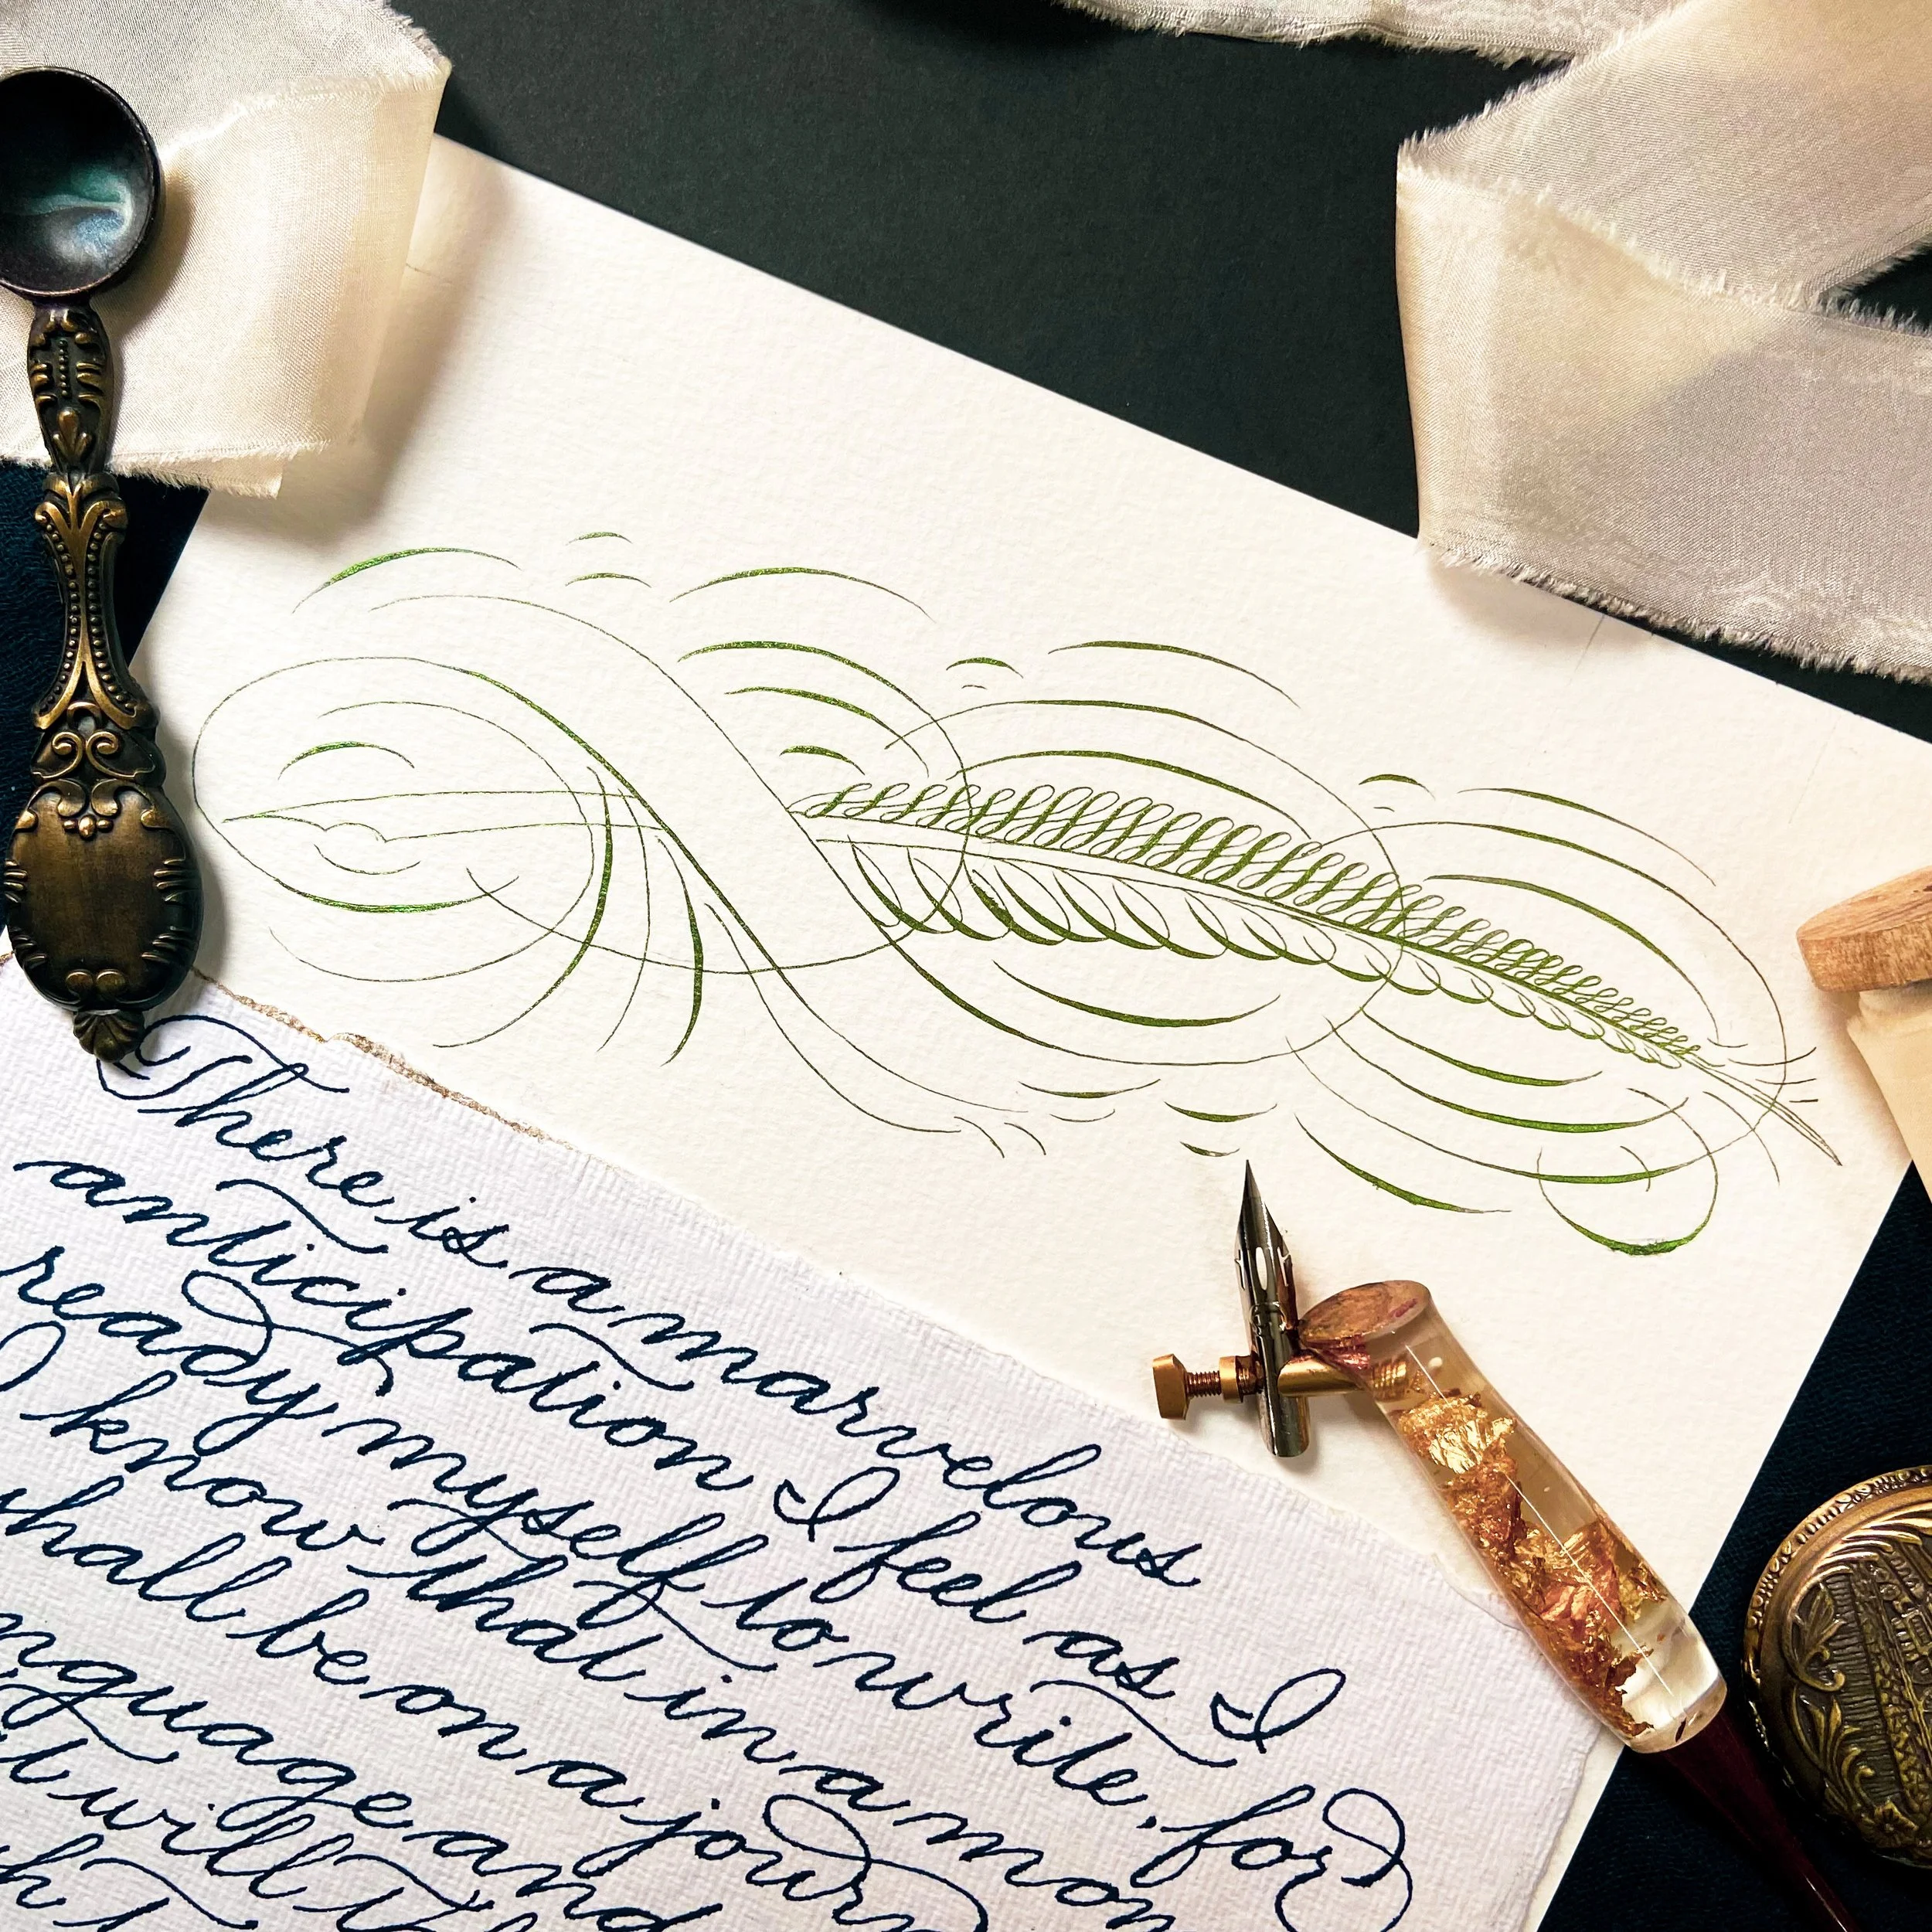 There is a marvelous
anticipation I feel as I
ready myself to write, for
I know that in a mom
shall be on a journ
nguage and
it will